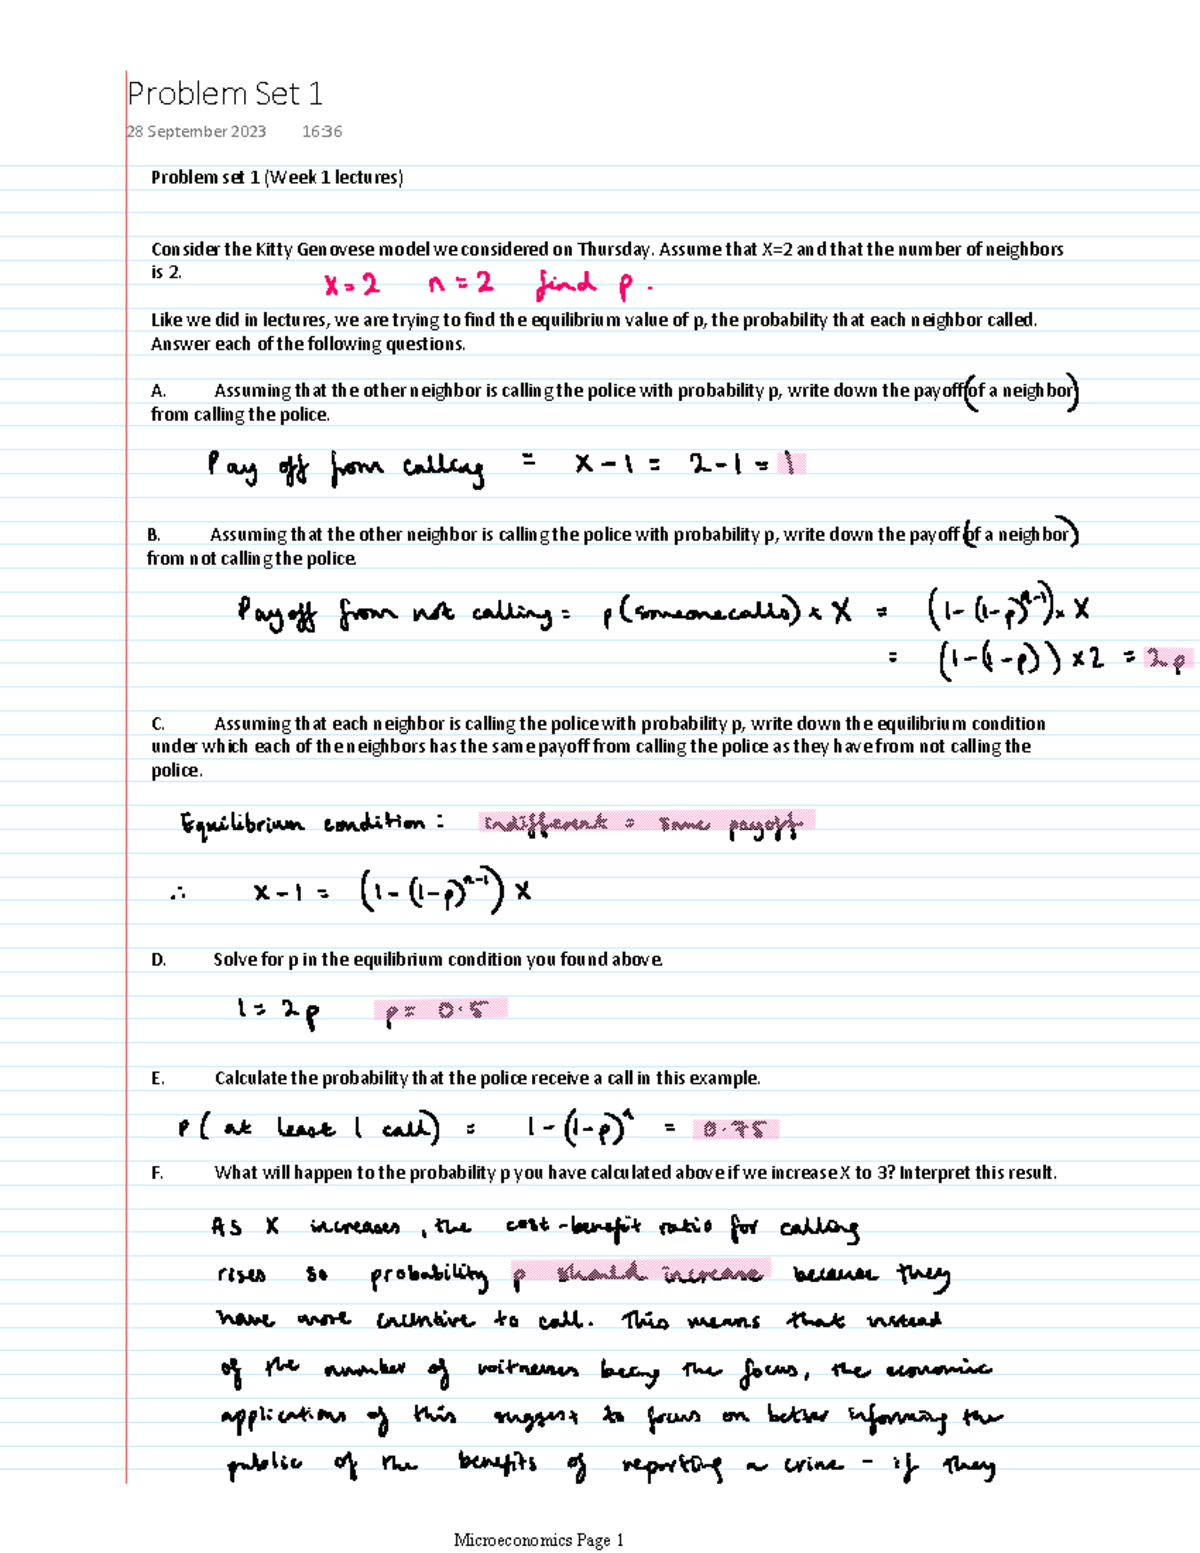 Problem Set 1
28 September 2023 16:36
Problem set 1 (Week 1 lectures)
Consider the Kitty Genovese model we considered on Thursday. Assume that X=2 and that the number of neighbors
is 2.
x = 2 n = 2 find p.
Like we did in lectures, we are trying to find the equilibrium value of p, the probability that each neighbor called.
Answer each of the following questions.
A. Assuming that the other neighbor is calling the police with probability p, write down the payoff (of a neighbor)
from calling the police.
Pay off from calling = x - 1 = 2 - 1 = 1
B. Assuming that the other neighbor is calling the police with probability p, write down the payoff (of a neighbor)
from not calling the police.
Payoff from not calling = p(someone calls) × X = (1 - (1-p)^{n-1}) × X
= (1 - (1-p)) × 2 = 2p
C. Assuming that each neighbor is calling the police with probability p, write down the equilibrium condition
under which each of the neighbors has the same payoff from calling the police as they have from not calling the
police.
Equilibrium condition : indifferent = same payoff
∴ x - 1 = (1 - (1-p)^{n-1}) X
D. Solve for p in the equilibrium condition you found above.
1 = 2p p = 0.5
E. Calculate the probability that the police receive a call in this example.
P( at least 1 call) = 1 - (1-p)^n = 0.75
F. What will happen to the probability p you have calculated above if we increase X to 3? Interpret this result.
As X increases, the cost-benefit ratio for calling
rises so probability p should increase because they
have more incentive to call. This means that instead
of the number of witnesses being the focus, the economic
applications of this suggest to focus on better informing the
public of the benefits of reporting a crime - if they
Microeconomics Page 1